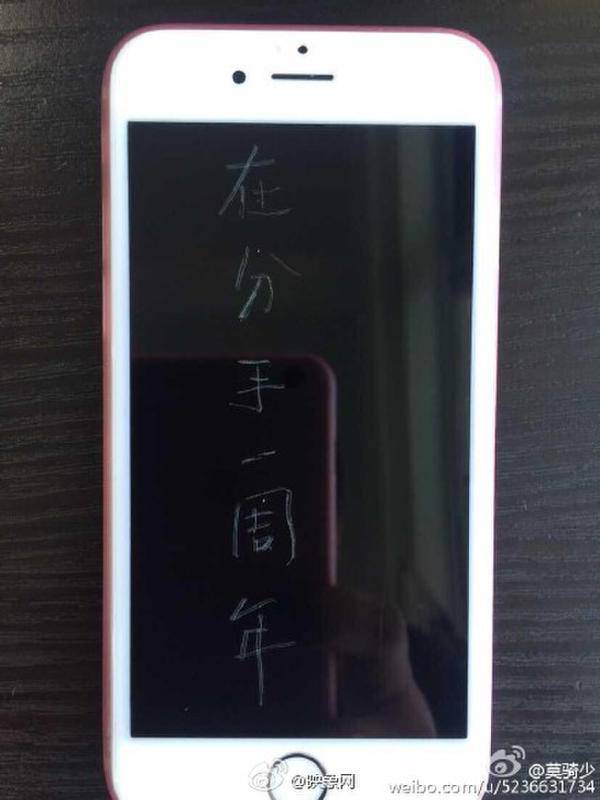 在分手一周年
@莫骑少
@映象网
weibo.com/u/5236631734